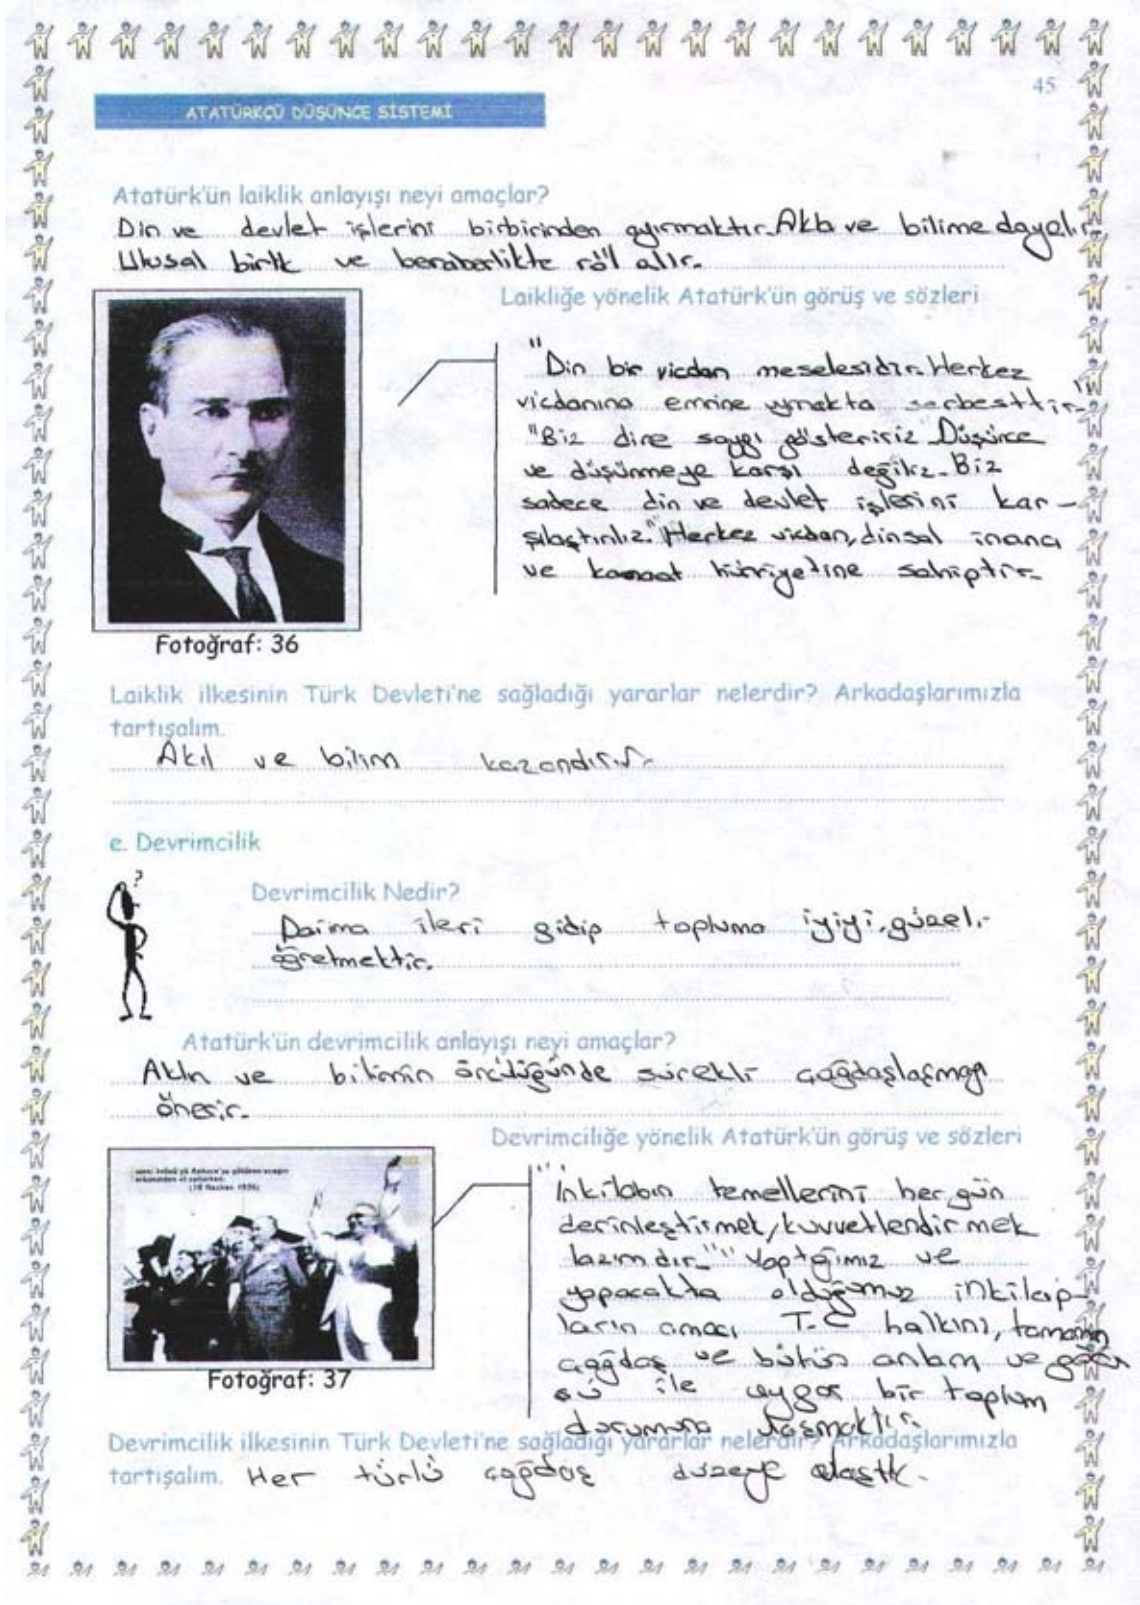 45
ATATÜRKÇÜ DÜŞÜNCE SİSTEMİ
Atatürk'ün laiklik anlayışı neyi amaçlar?
Din ve devlet işlerini birbirinden ayırmaktır. Akla ve bilime dayalır.
Ulusal birlik ve beraberlikte rol alır.
Laikliğe yönelik Atatürk'ün görüş ve sözleri
"Din bir vicdan meselesidir. Herkez
vicdanına emrine uymakta serbesttir."
"Biz dine saygı gösteririz Düşünce
ve düşünmeye karşı değiliz. Biz
sadece din ve devlet işlerini kar-
şılaştırılız." Herkez vicdan, dinsal inancı
ve kanaat hürriyetine sahiptir.
Fotoğraf: 36
Laiklik ilkesinin Türk Devleti'ne sağladığı yararlar nelerdir? Arkadaşlarımızla
tartışalım.
Akıl ve bilim kazandırır.
e. Devrimcilik
?
Devrimcilik Nedir?
Daima ileri gidip topluma iyiyi, güzeli
öğretmektir.
Atatürk'ün devrimcilik anlayışı neyi amaçlar?
Aklın ve bilimin öncülüğünde sürekli çağdaşlaşmayı
önerir.
Devrimciliğe yönelik Atatürk'ün görüş ve sözleri
"İnkilabın temellerini her gün
derinleştirmek, kuvvetlendirmek
lazımdır." "Yaptığımız ve
yapacakta olduğumuz inkilap-
ların amacı T.C halkını, tamamen
çağdaş ve bütün anlam ve
ile uygar bir toplum
durumuna ulaşmaktır.
(18 Haziran 1926)
Fotoğraf: 37
Devrimcilik ilkesinin Türk Devleti'ne sağladığı yararlar nelerdir? Arkadaşlarımızla
tartışalım. Her türlü çağdaş düzeye ulaştık.